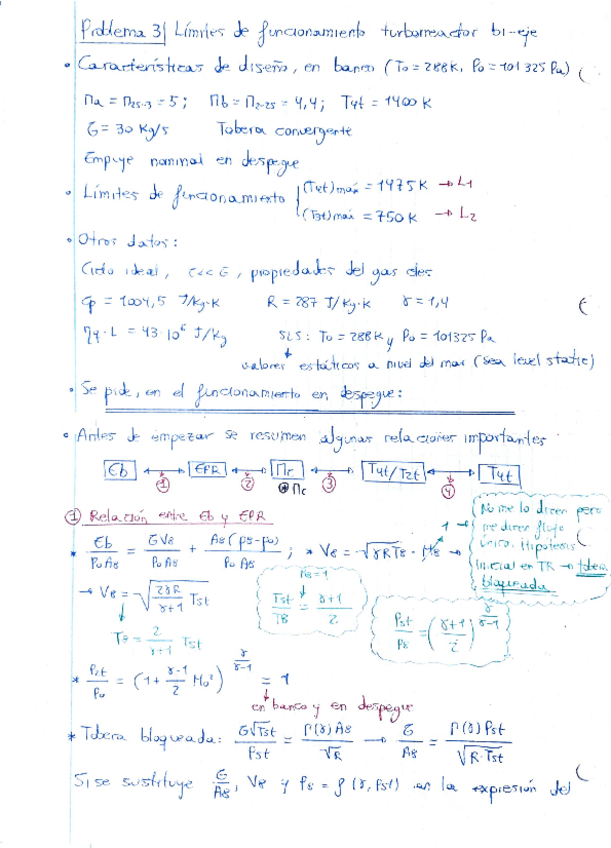 Problema 3| Límites de funcionamiento turborreactor bi-eje
• Características de diseño, en banco (T0 = 288K, P0 = 101325 Pa)
Πa = Π25-3 = 5; Πb = Π2-25 = 4,4; T4t = 1400 K
G = 30 Kg/s Tobera convergente
Empuje nominal en despegue
• Límites de funcionamiento { (T4t)máx = 1475 K → L1
(T3t)máx = 750 K → L2
• Otros datos:
Ciclo ideal, c<<G, propiedades del gas ctes
Cp = 1004,5 J/Kg·K R = 287 J/Kg·K γ = 1,4
η4·L = 43·10⁶ J/Kg SLS: T0 = 288K y P0 = 101325 Pa
valores estáticos a nivel del mar (Sea level static)
• Se pide, en el funcionamiento en despegue:
• Antes de empezar se resumen algunas relaciones importantes
Eb ↔ EPR ↔ Πc ↔ T4t/T2t ↔ T4t
① ② Πc ③ ④
① Relación entre Eb y EPR
* Eb/(P0A8) = GV8/(P0A8) + A8(P8-P0)/(P0A8); * V8 = √(γRT8) · M8 →
1 → No me lo dicen pero
me dicen flujo
único. Hipótesis
inicial en TR → tobera
bloqueada
→ V8 = √(2γR/(γ+1) T5t)
T8 = 2/(γ+1) T5t
M8=1
T5t/T8 = (γ+1)/2
P5t/P8 = ((γ+1)/2)^(γ/(γ-1))
* P2t/P0 = (1 + (γ-1)/2 M0²)^(γ/(γ-1)) = 1
en banco y en despegue
* Tobera bloqueada: G√T5t/P5t = Γ(γ)A8/√R → G/A8 = Γ(γ)P5t/√(R·T5t)
Si se sustituye G/A8, V8 y P8 = f(γ, P5t) en la expresión del